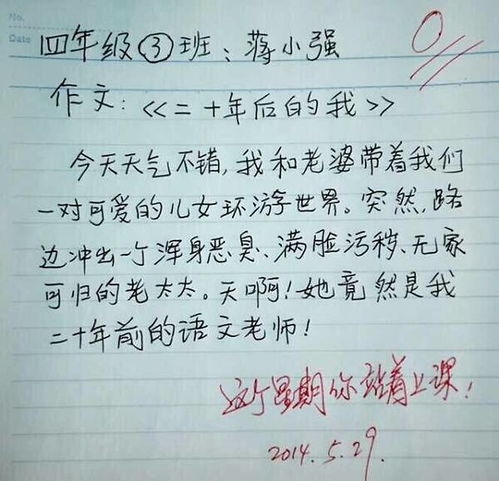 No.
Date
0
四年级③班：蒋小强
作文：《二十年后的我》
今天天气不错,我和老婆带着我们
一对可爱的儿女环游世界。突然,路
边冲出一个浑身恶臭、满脸污秽、无家
可归的老太太。天啊!她竟然是我
二十年前的语文老师!
这个星期你站着上课!
2014.5.29.